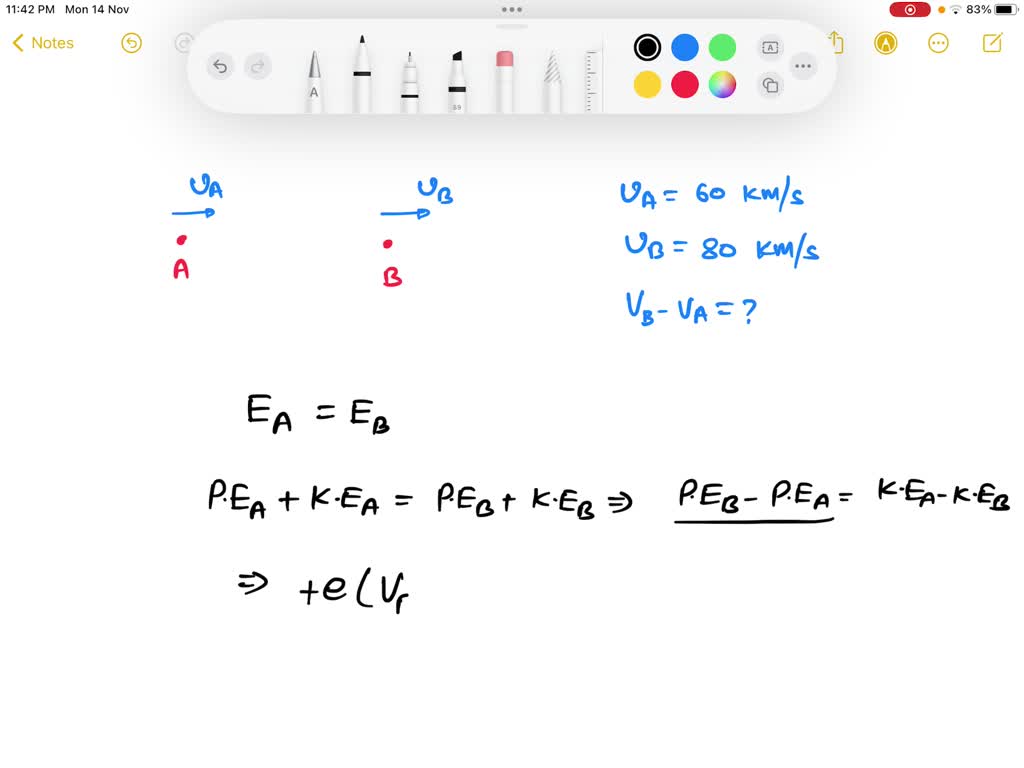 11:42 PM Mon 14 Nov
83%
Notes
A
A
A
69
υA
υB
υA = 60 km/s
A
B
υB = 80 km/s
VB - VA = ?
EA = EB
P.EA + K.EA = P.EB + K.EB ⇒ P.EB - P.EA = K.EA - K.EB
⇒ +e(Vr